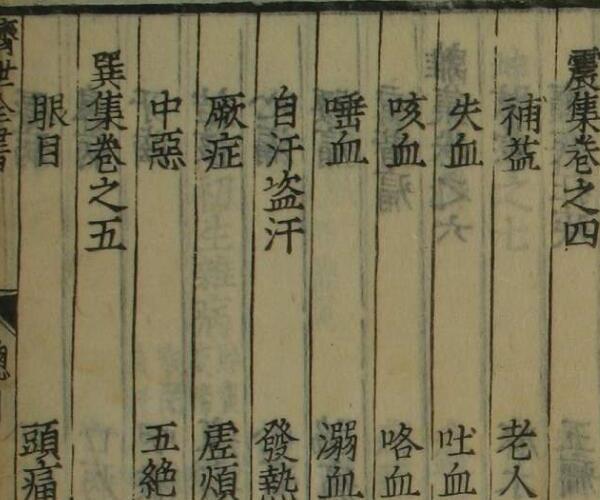 震集卷之四
補益 老人
失血 吐血
咳血 咯血
唾血 溺血
自汗盗汗 發熱
厥症 虚煩
中惡 五絶
巽集卷之五
眼目 頭痛
濟世全書
總